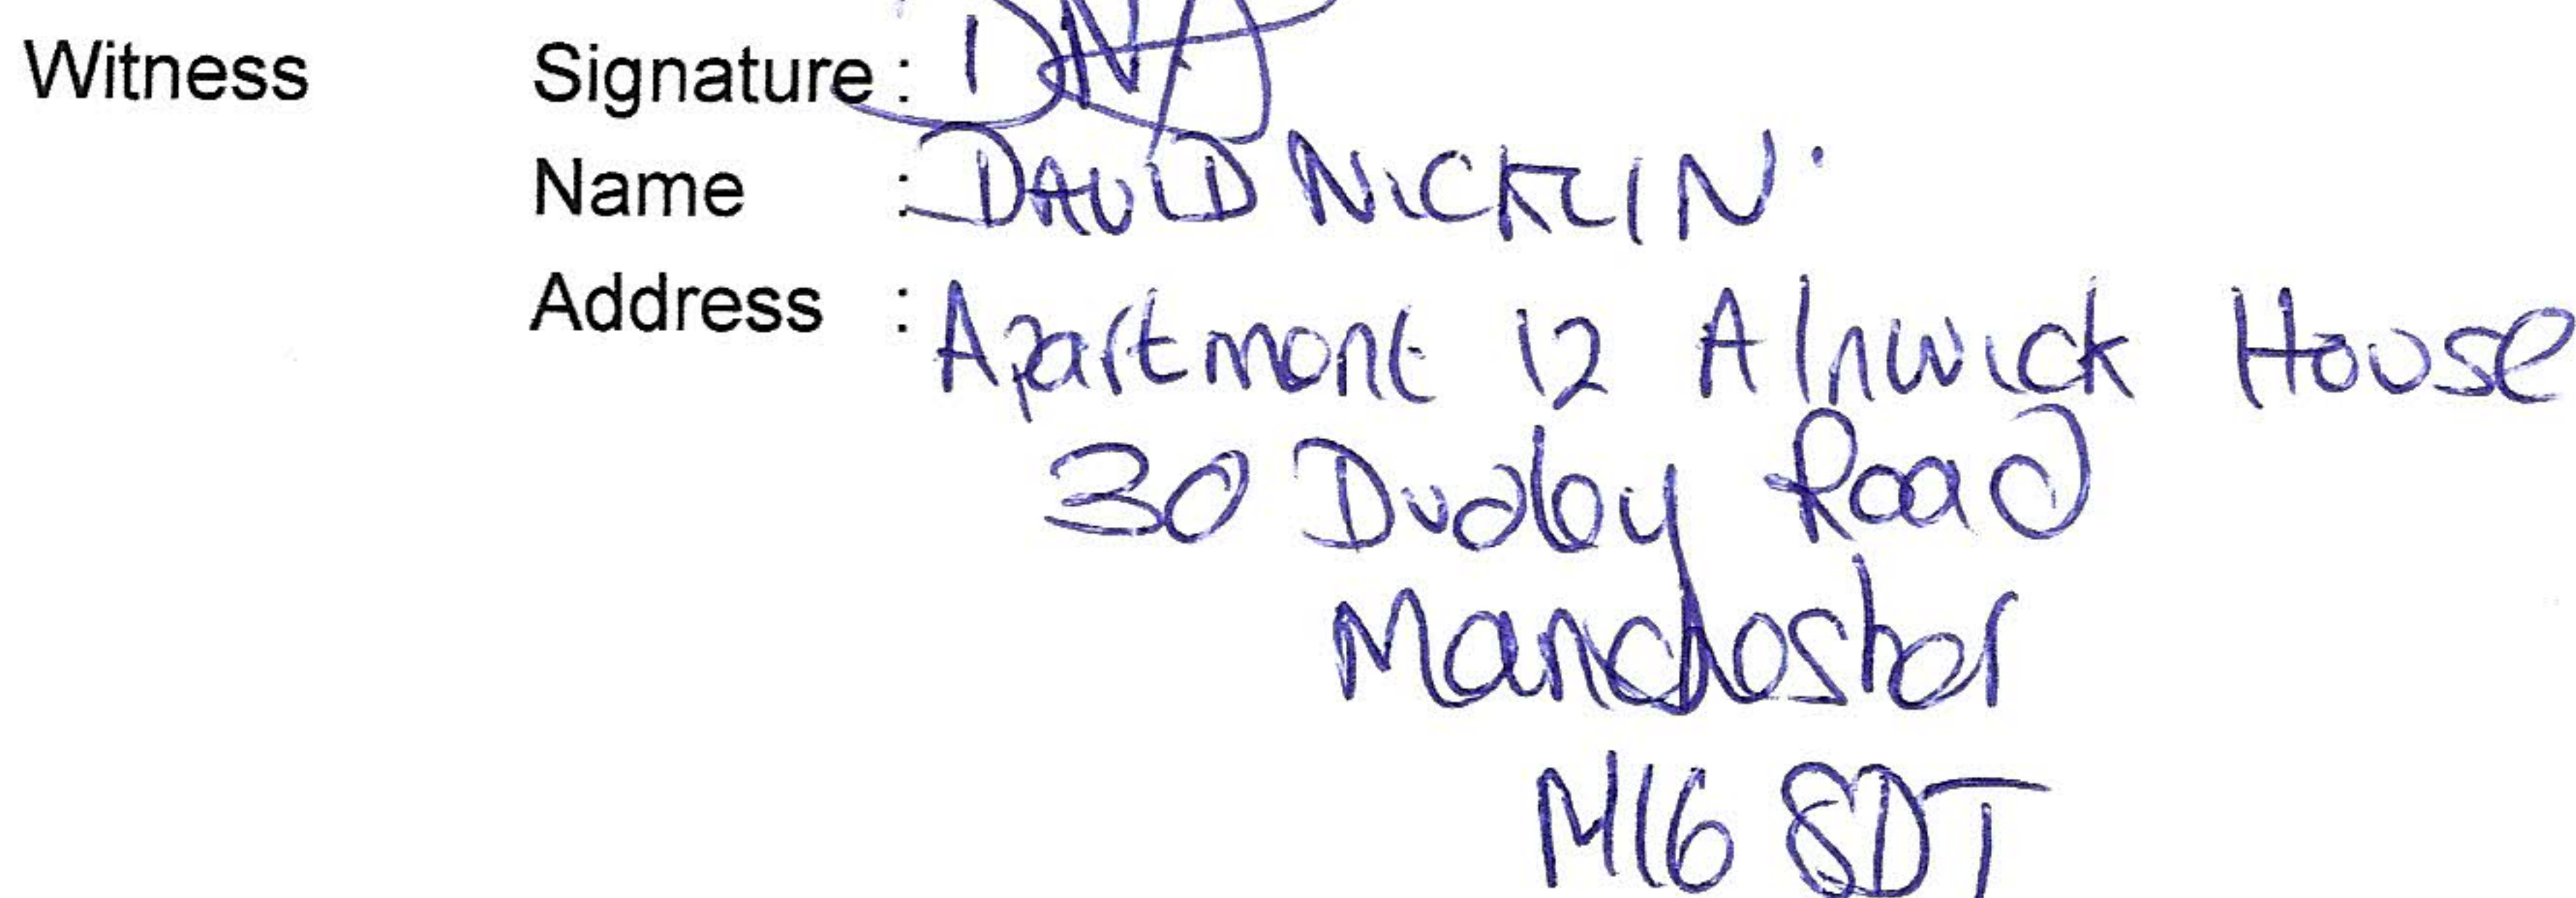 Witness Signature :
Name : DAVID NICKLIN.
Address : Apartment 12 Alnwick House
30 Dudley Road
Manchester
M16 8DT